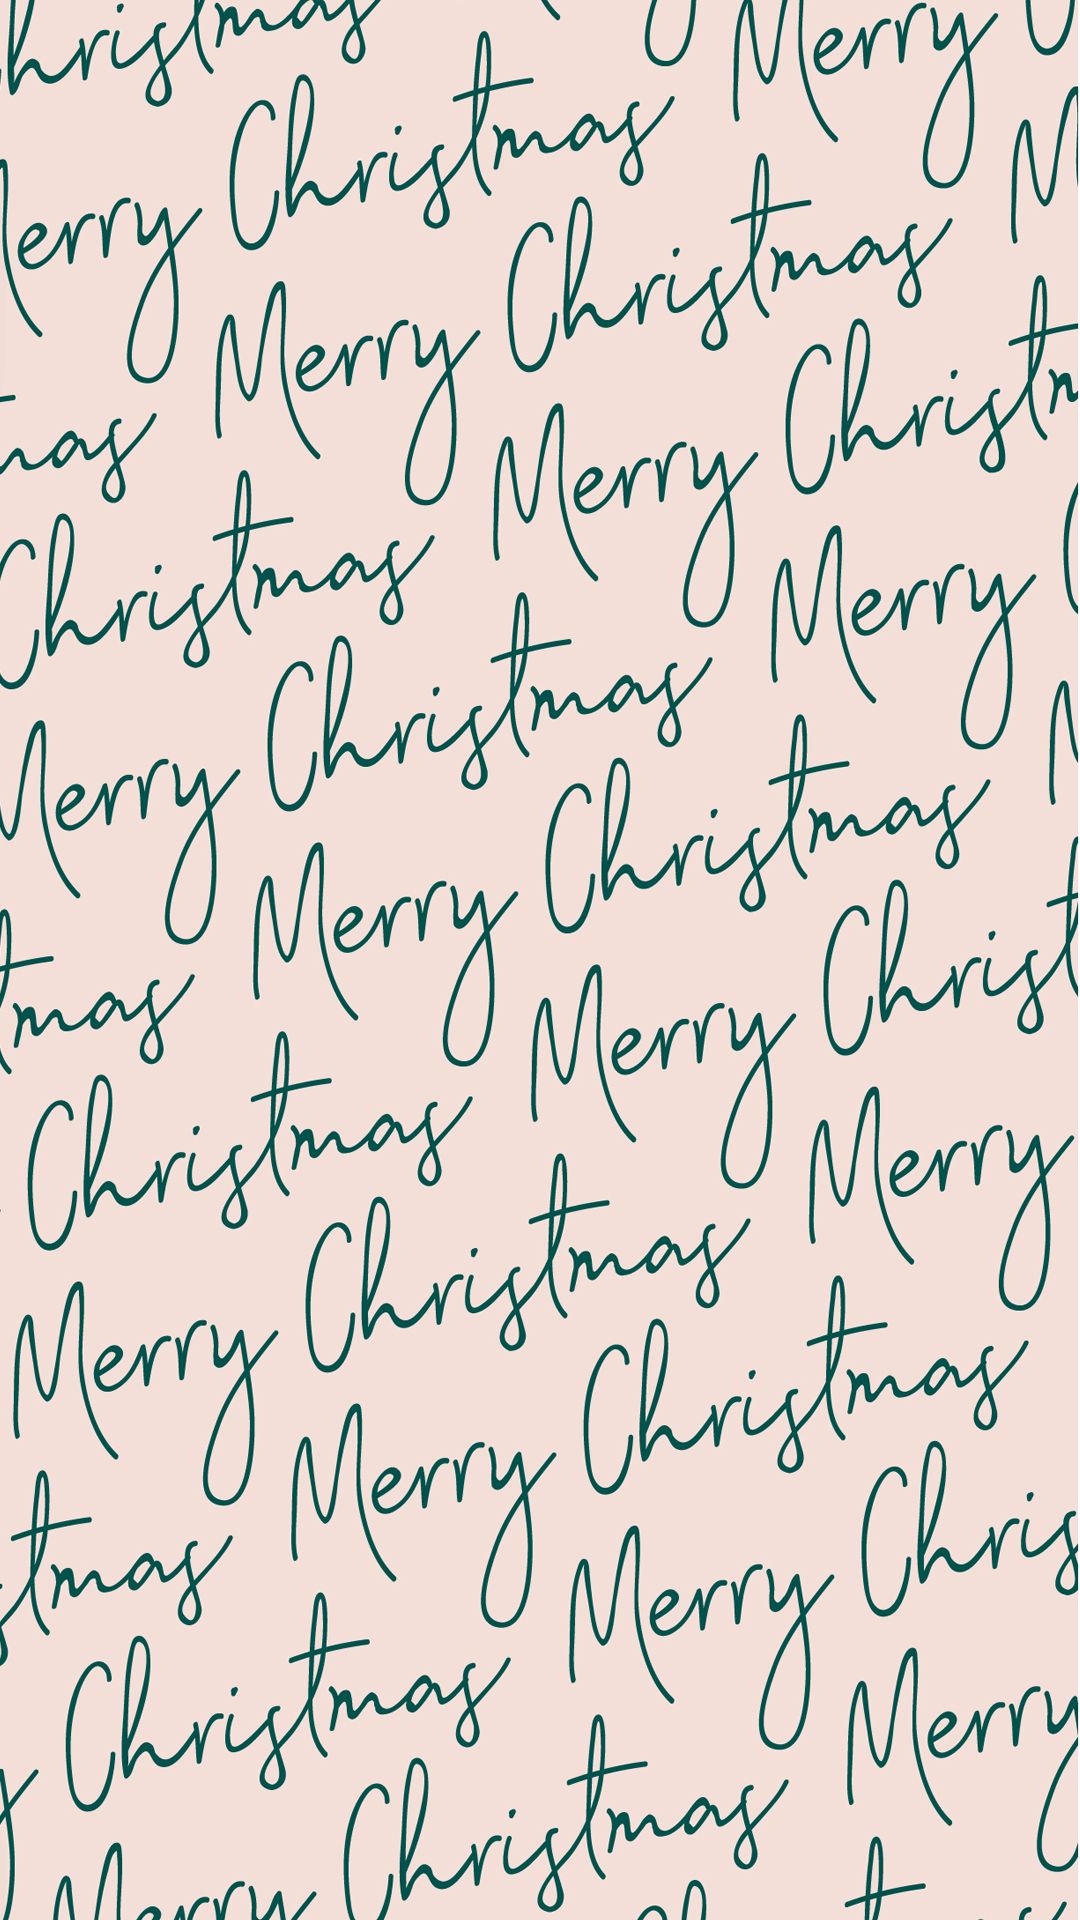 hristmas
Merry Christmas Merry
mas Merry Christmas M
Christmas Merry Christm
Merry Christmas Merry
tmas Merry Christmas
Christmas Merry Christ
Merry Christmas Merry
tmas Merry Christmas
Christmas Merry Chris
Merry Christmas Merry